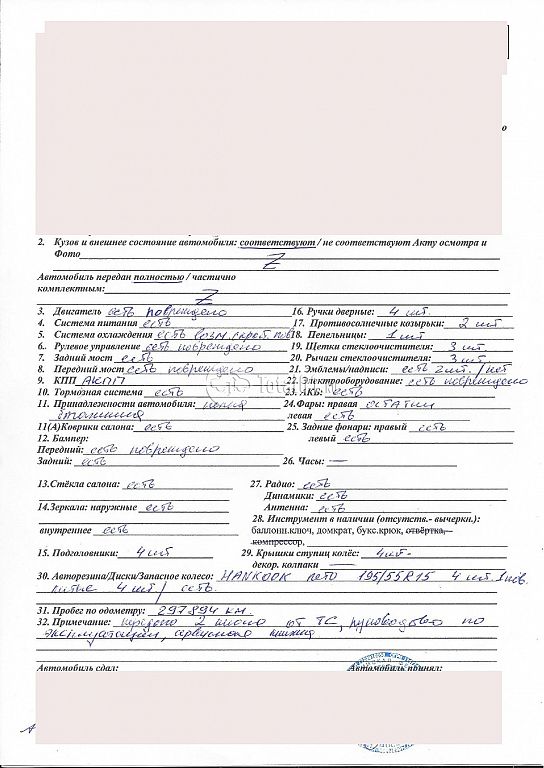 о
2. Кузов и внешнее состояние автомобиля: соответствуют / не соответствуют Акту осмотра и
Фото Z
Автомобиль передан полностью / частично
комплектным: Z
3. Двигатель есть повреждено 16. Ручки дверные: 4 шт.
4. Система питания есть 17. Противосолнечные козырьки: 2 шт
5. Система охлаждения есть возм. скрот. пов 18. Пепельницы: 1 шт
6. Рулевое управление есть повреждено 19. Щетки стеклоочистителя: 3 шт.
7. Задний мост есть 20. Рычаги стеклоочистителя: 3 шт.
8. Передний мост есть повреждено 21. Эмблемы/надписи: есть 2 шт. / нет
9. КПП АКПП 22. Электрооборудование: есть повреждено
10. Тормозная система есть 23. АКБ: есть
11. Принадлежности автомобиля: 24. Фары: правая
левая есть
11(А)Коврики салона: есть 25. Задние фонари: правый есть
12. Бампер: левый есть
Передний: есть повреждено
Задний: есть 26. Часы: —
13.Стёкла салона: есть 27. Радио: есть
Динамики: есть
14.Зеркала: наружные есть Антенна: есть
28. Инструмент в наличии (отсутств.- вычеркн.):
внутреннее есть баллонн.ключ, домкрат, букс.крюк, отвёртка,
компрессор,
15. Подголовники: 4 шт 29. Крышки ступиц колёс: 4 шт-
декор. колпаки —
30. Авторезина/Диски/Запасное колесо: HANKOOK лето 195/55 R15 4 шт.
литые 4 шт / есть.
31. Пробег по одометру: 297894 км.
32. Примечание: передано 2 ключа от ТС, руководство по
эксплуатации, сервисная книжка
Автомобиль сдал: Автомобиль принял: